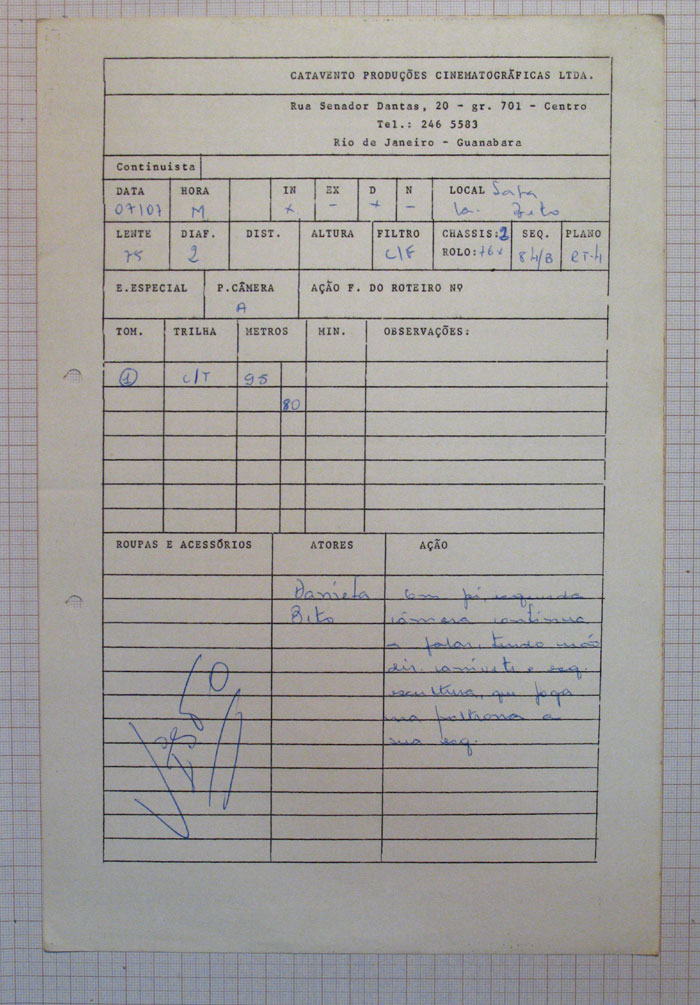 CATAVENTO PRODUÇÕES CINEMATOGRÁFICAS LTDA.
Rua Senador Dantas, 20 - gr. 701 - Centro
Tel.: 246 5583
Rio de Janeiro - Guanabara
Continuista
DATA HORA IN EX D N LOCAL Sala
07/07 M x - x -
LENTE DIAF. DIST. ALTURA FILTRO CHASSIS: 2 SEQ. PLANO
75 2 C/F ROLO: 84/B RT-4
E.ESPECIAL P.CÂMERA AÇÃO F. DO ROTEIRO Nº
A
TOM. TRILHA METROS MIN. OBSERVAÇÕES:
1 C/T 95
80
ROUPAS E ACESSÓRIOS ATORES AÇÃO
Daniela Em pé, esquerda
Beto câmera continua
a falar, tendo mão
dir. canivete e esq.
escultura, que joga
na poltrona a
sua esq.